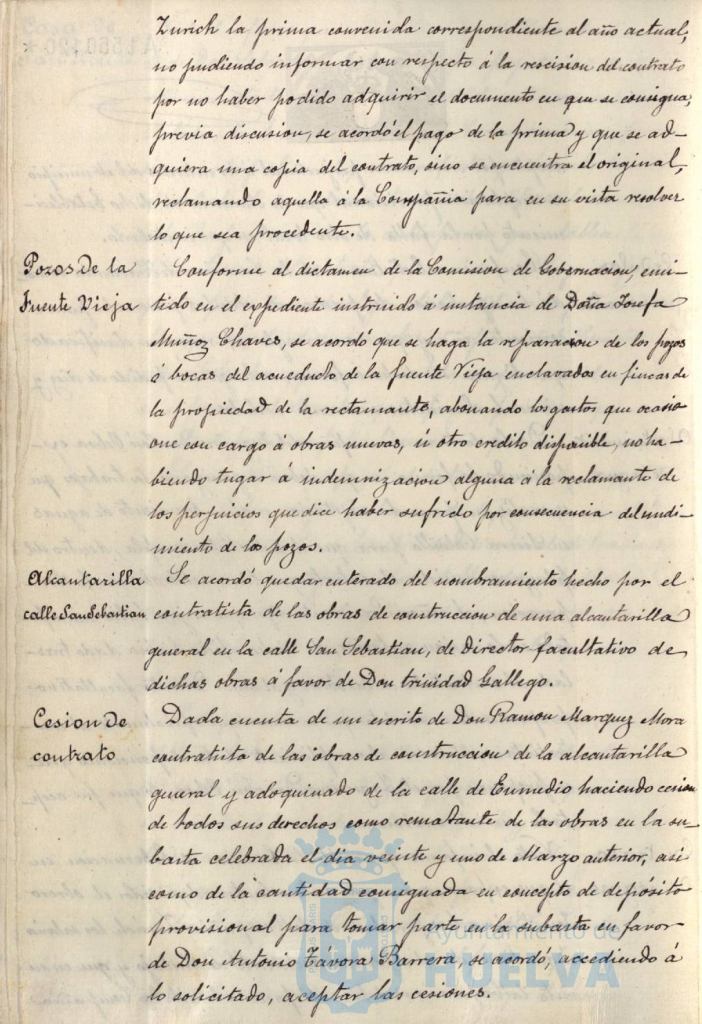 Zurich la prima convenida correspondiente al año actual,
no pudiendo informar con respecto á la rescision del contrato
por no haber podido adquirir el documento en que se consigna,
previa discusion, se acordó el pago de la prima y que se ad-
quiera una copia del contrato, sino se encuentra el original,
reclamando aquella á la Compañia para en su vista resolver
lo que sea procedente.
Pozos de la
Fuente Vieja
Conforme al dictamen de la Comision de Gobernacion, emi-
tido en el expediente instruido á instancia de Doña Josefa
Muñoz Chaves, se acordó que se haga la reparacion de los pozos
ó bocas del acueducto de la fuente Vieja enclavados en fincas de
la propiedad de la reclamante, abonando los gastos que ocasio
one con cargo á obras nuevas, ú otro credito disponible, no ha-
biendo lugar á indemnizacion alguna á la reclamante de
los perjuicios que dice haber sufrido por consecuencia del undi-
miento de los pozos.
Alcantarilla
calle San Sebastian
Se acordó quedar enterado del nombramiento hecho por el
contratista de las obras de construccion de una alcantarilla
general en la calle San Sebastian, de director facultativo de
dichas obras á favor de Don trinidad Gallego.
Cesion de
contrato
Dada cuenta de un escrito de Don Ramon Marquez Mora
contratista de las obras de construccion de la alcantarilla
general y adoquinado de la calle de Enmedio haciendo cesion
de todos sus derechos como rematante de las obras en la su-
basta celebrada el dia veinte y uno de Marzo anterior, asi
como de la cantidad consignada en concepto de depósito
provisional para tomar parte en la subasta en favor
de Don Antonio Távora Barrera, se acordó, accediendo á
lo solicitado, aceptar las cesiones.
Ayuntamiento de
HUELVA